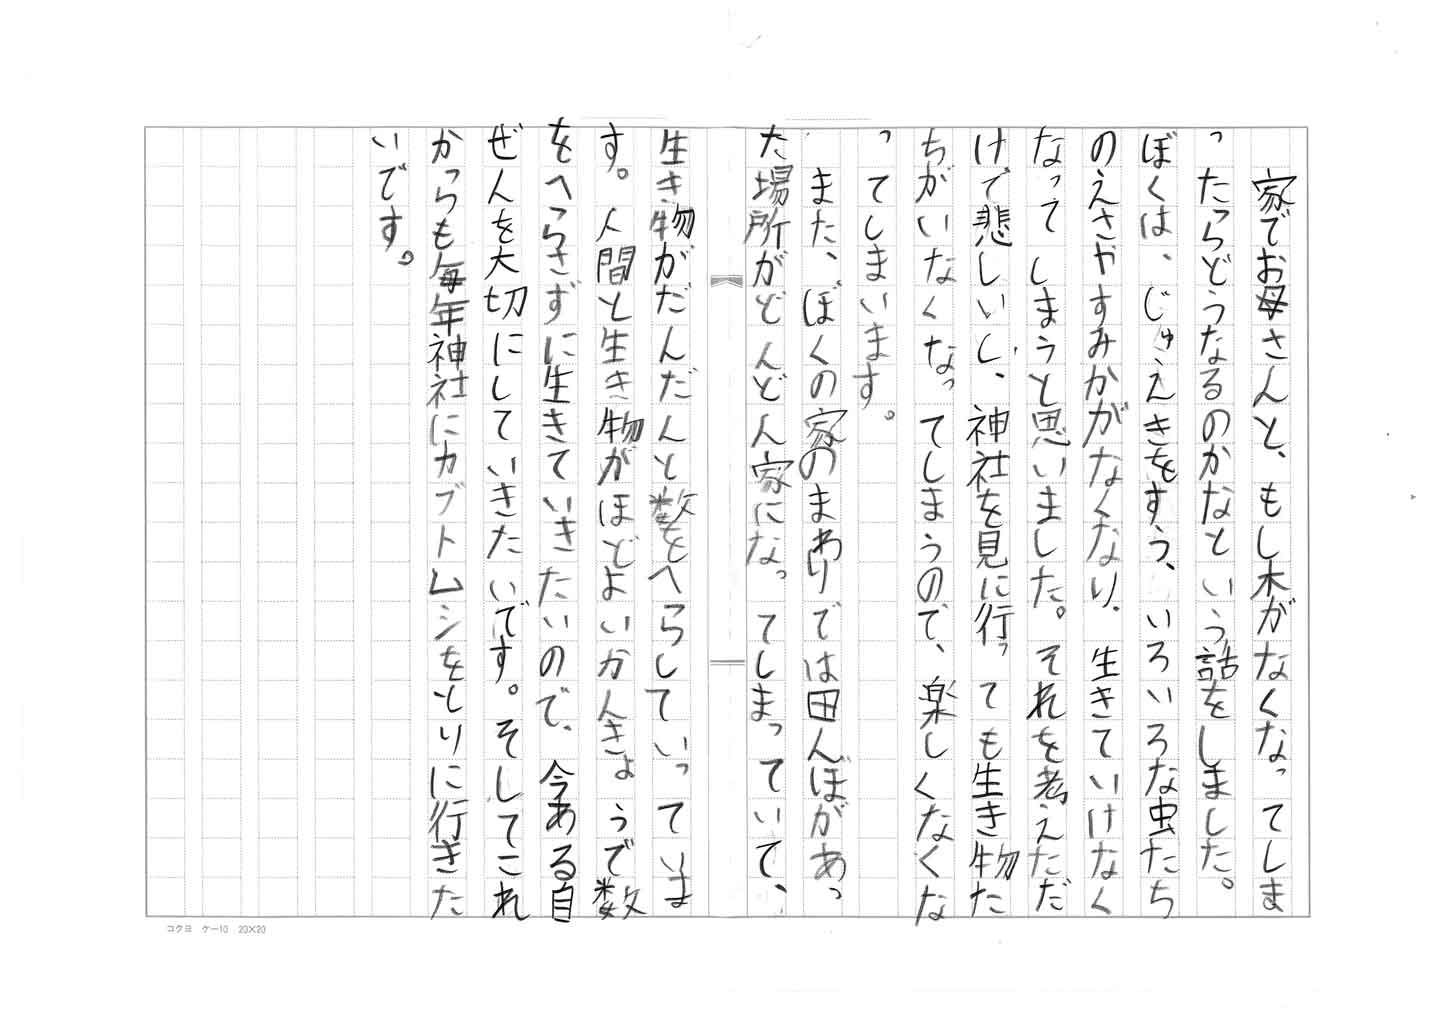 家でお母さんと、もし木がなくなってしま
ったらどうなるのかなという話をしました。
ぼくは、じゅえきをすう、いろいろな虫たち
のえさやすみかがなくなり、生きていけなく
なってしまうと思いました。それを考えただ
けで悲しいし、神社を見に行っても生き物た
ちがいなくなってしまうので、楽しくなくな
ってしまいます。
　また、ぼくの家のまわりでは田んぼがあっ
た場所がどんどん家になってしまっていて、
生き物がだんだんと数をへらしていっていま
す。人間と生き物がほどよいかんきょうで数
をへらさずに生きていきたいので、今ある自
ぜんを大切にしていきたいです。そしてこれ
からも毎年神社にカブトムシをとりに行きた
いです。
コクヨ　ケー10　20×20